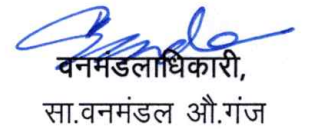 वनमंडलाधिकारी,
सा.वनमंडल औ.गंज